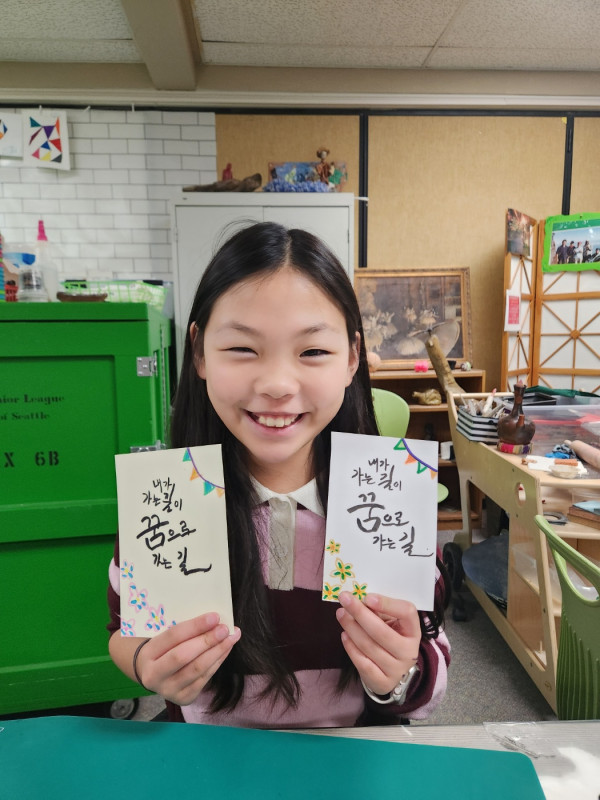 nior League
of Seattle
X 6B
내가
가는 길이
꿈으로
가는 길
내가
가는 길이
꿈으로
가는 길